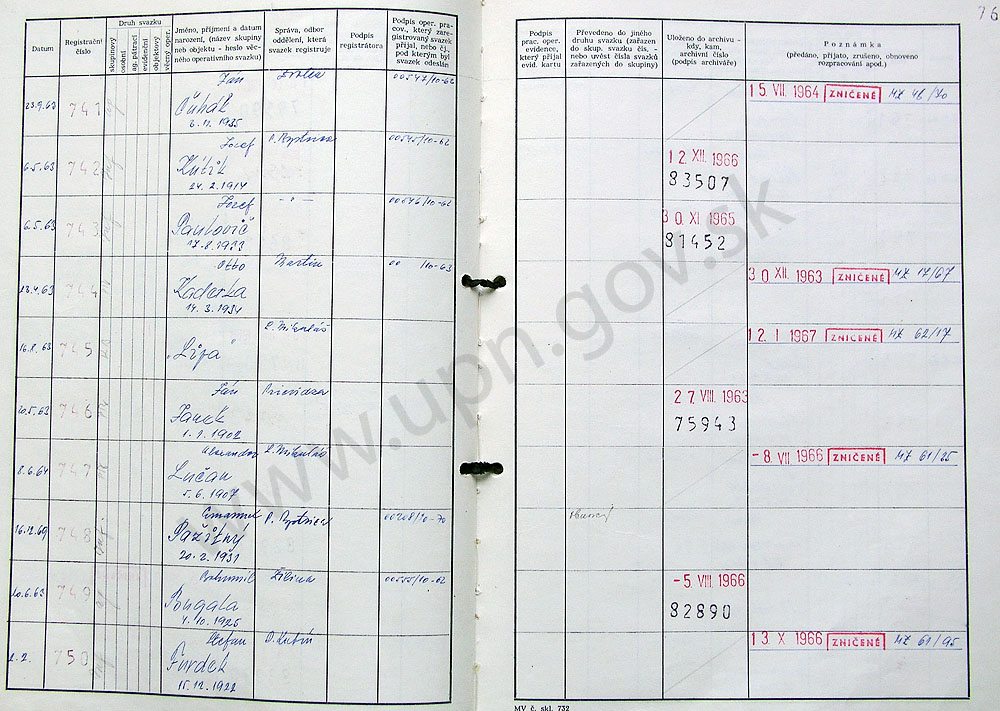 76
Datum
Registrační číslo
Druh svazku
skupinový
osobní
ag. pátrací
evidenční
objektový
věcný oper.
Jméno, příjmení a datum narození, (název skupiny neb objektu - heslo věcného operativního svazku)
Správa, odbor oddělení, která svazek registruje
Podpis registrátora
Podpis oper. pracov., který zaregistrovaný svazek přijal, nebo čj., pod kterým byl svazek odeslán
Podpis prac. oper. evidence, který přijal evid. kartu
Převedeno do jiného druhu svazku (zařazen do skup. svazku čís. - nebo uvést čísla svazků zařazených do skupiny)
Uloženo do archivu - kdy, kam, archivní číslo (podpis archiváře)
Poznámka
(předáno, přijato, zrušeno, obnoveno rozpracování apod.)
23.9.63 741 Ján 00547/10-62 15. VII. 1964 ZNIČENÉ MZ 48/70
Čuhák
6.5.63 742 Jozef B. Bystrica 00545/10-62 12. XII. 1966
Kútik 83507
24.2.1914
6.5.63 743 Jozef -"- 00546/10-62 30. XI. 1965
Paulovič 81452
17.8.1933
23.4.63 744 Otto Martin 00 /10-63 30. XII. 1963 ZNIČENÉ MZ 17/67
Kaderka
14.3.1934
16.8.63 745 L. Mikuláš 12. I 1967 ZNIČENÉ MZ 62/17
"Lipa"
20.5.62 746 Ján Prievidza 27. VIII. 1963
Janek 75943
1.1.1902
8.6.64 747 Alexander L. Mikuláš -8. VII. 1966 ZNIČENÉ MZ 61/25
Lučan
5.6.1907
16.12.69 748 Emanuel B. Bystrica 00208/10-70
Pažitný
20.2.1931
20.6.63 749 Bohumil Žilina 00555/10-62 -5. VIII. 1966
Bugala 82890
4.10.1925
2.2. 750 Štefan D. Kubín 13. X 1966 ZNIČENÉ MZ 61/95
Furdek
15.12.1922
MV č. skl. 732
www.upn.gov.sk